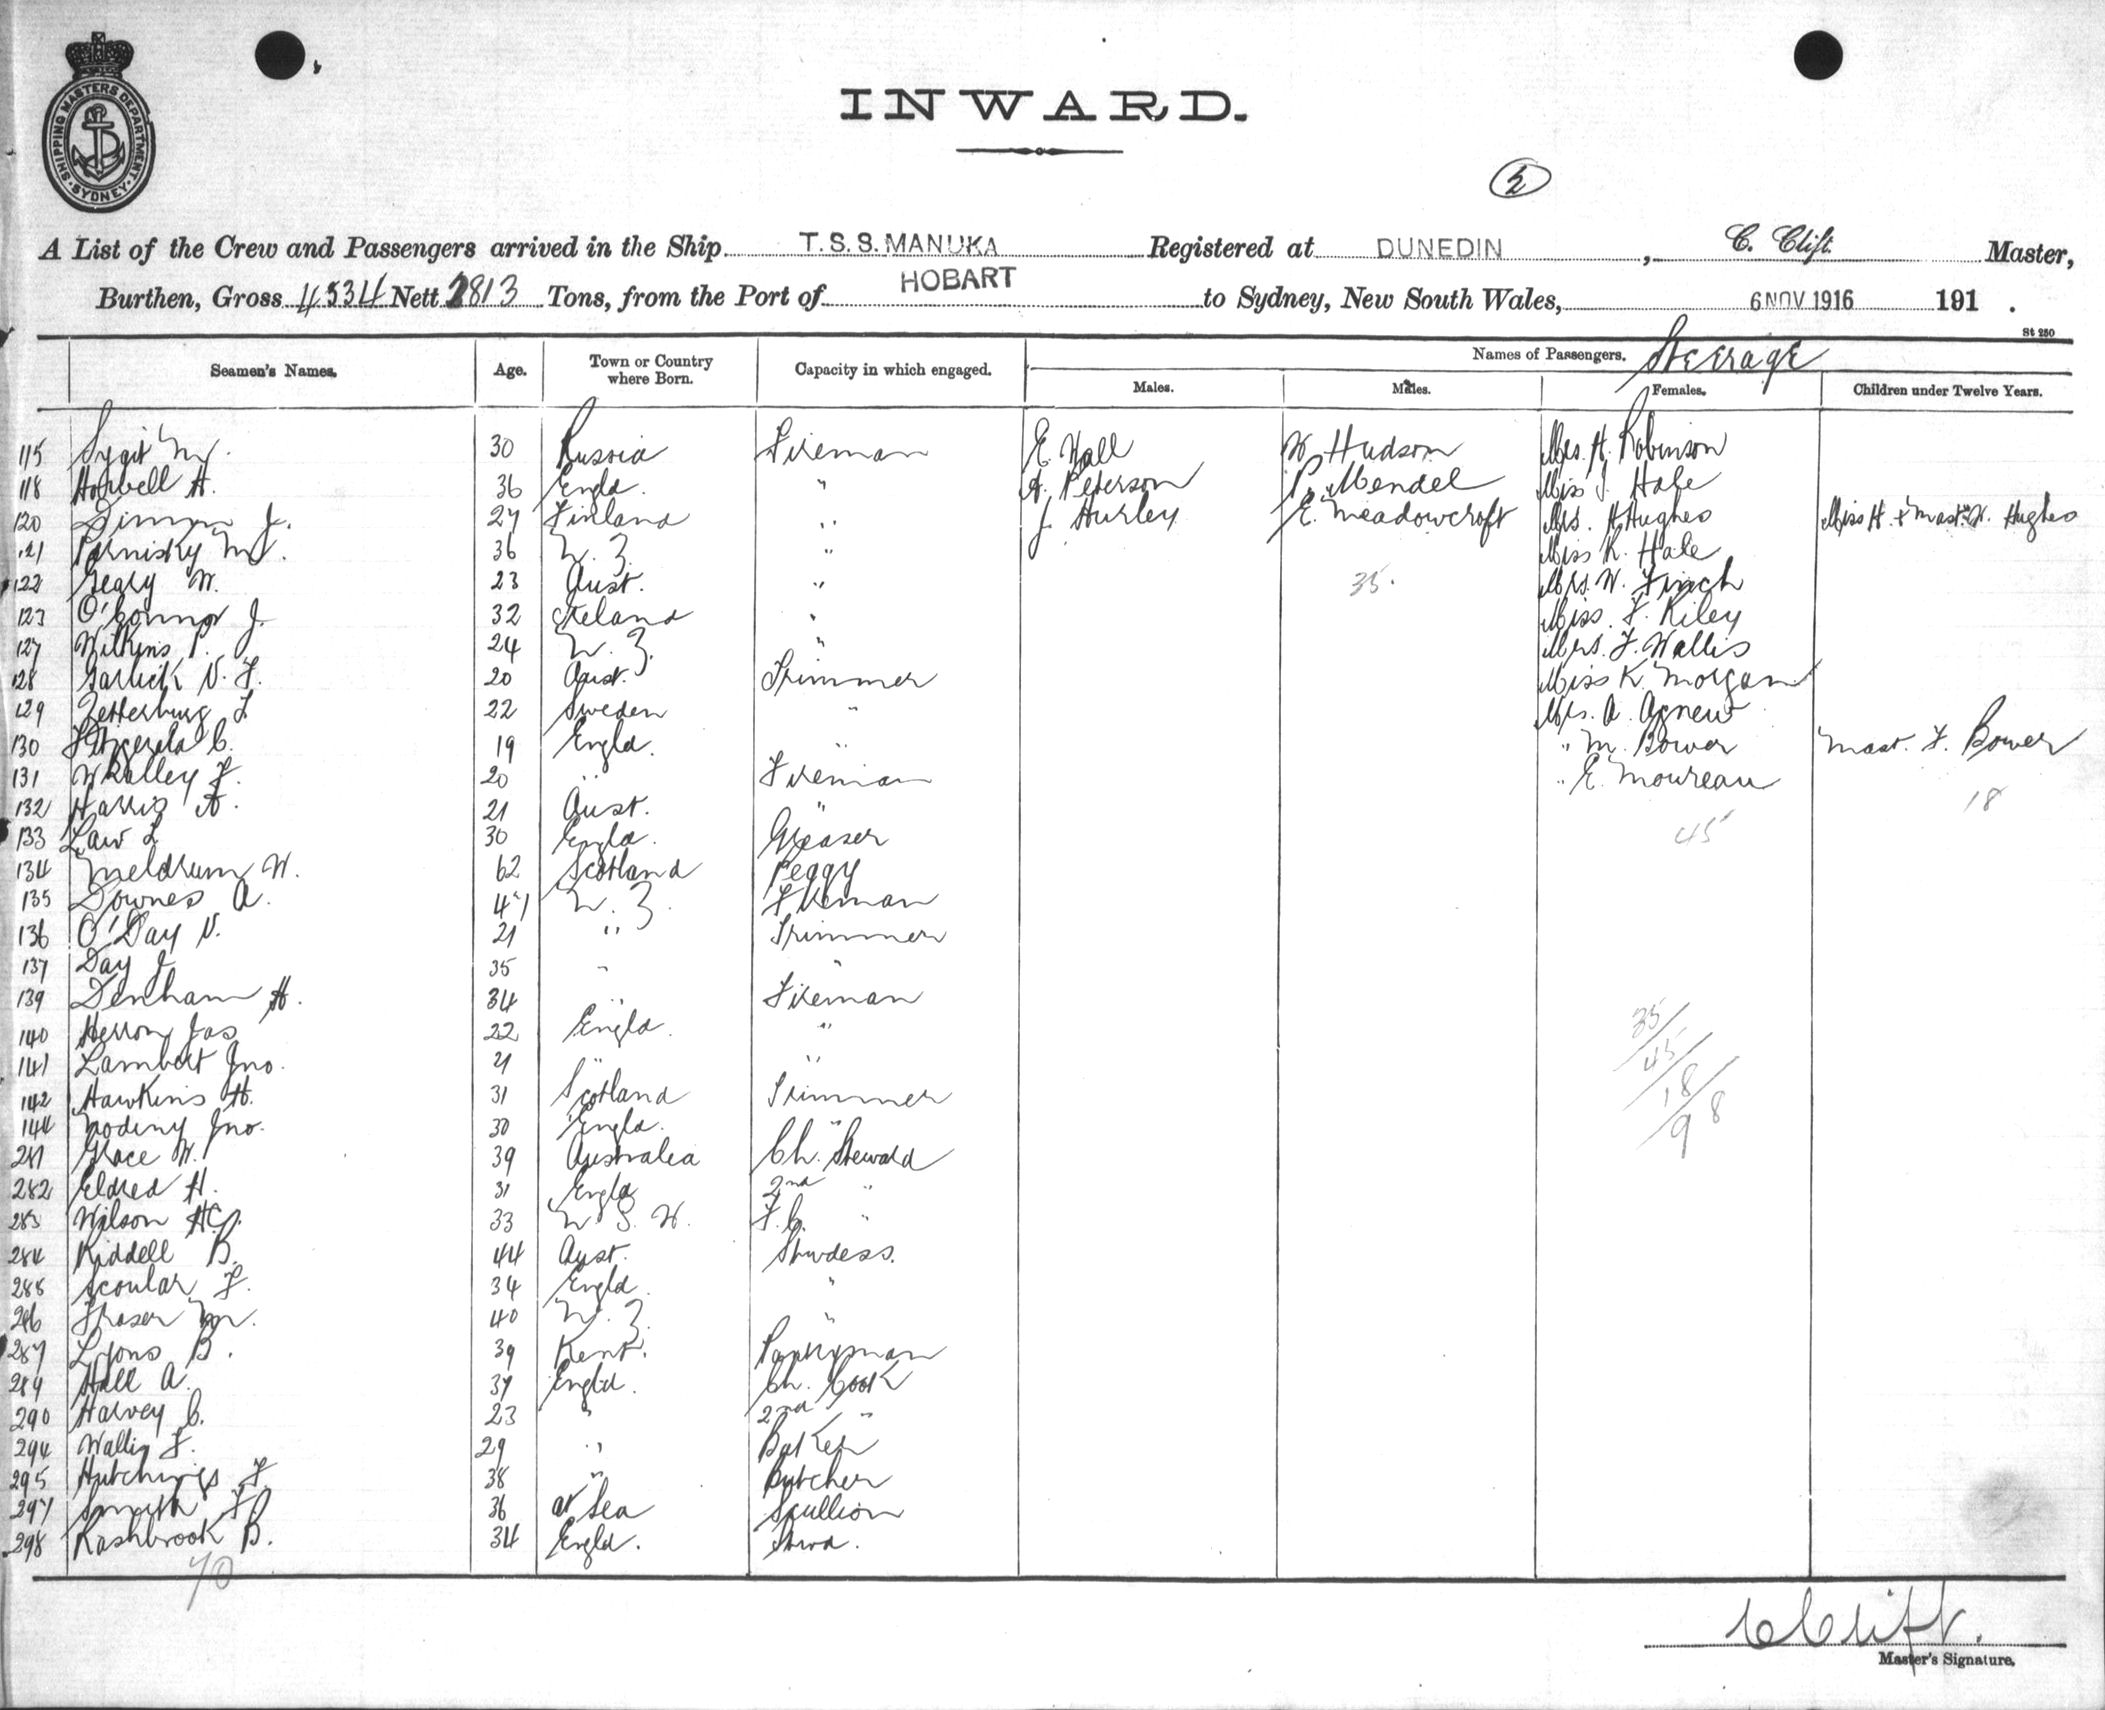 SHIPPING MASTERS DEPARTMENT. SYDNEY.
INWARD.
A List of the Crew and Passengers arrived in the Ship T.S.S. MANUKA Registered at DUNEDIN, C. Clift. Master,
Burthen, Gross 4534 Nett 2813 Tons, from the Port of HOBART to Sydney, New South Wales, 6 NOV 1916 191 .
St 250
Names of Passengers. Steerage
Seamen's Names. Age. Town or Country where Born. Capacity in which engaged. Males. Males. Females. Children under Twelve Years.
115 M. 30 Russia Fireman E. Hall W. Hudson Mrs. H. Robinson
118 H. 36 Engld. " A. Peterson P. Mendel Miss J. Hale
120 J. 27 Finland " J. Hurley E. Meadowcroft Mrs. H. Hughes Miss H. & Mast. W. Hughes
121 M. 36 N.Z. " Miss K. Hale
122 Geary W. 23 Aust. " 35. Mrs. W. Finch
123 O'Connor J. 32 Ireland " Miss. F. Kiley
127 Wilkins P. 24 N.Z. " Mrs. F. Wallis
128 Garlick V. F. 20 Aust. Trimmer Miss K. Morgan
129 Zetterburg F. 22 Sweden " Mrs. A. Agnew
130 C. 19 Engld. " " M. Bower Mast. F. Bower
131 Whalley F. 20 " Fireman " E. Moureau
132 Harris A. 21 Aust. " 18
133 Law L 30 Engld. Greaser 45
134 Meldrum W. 62 Scotland Peggy
135 Downes A. 47 N.Z. Fireman
136 O'Day V. 21 " Trimmer
137 Day J 35 " "
139 Denham H. 34 " Fireman
140 Herron Jas 22 Engld. "
141 Lambert Jno. 21 " "
142 Hawkins H. 31 Scotland Trimmer
144 Jno. 30 Engld. "
281 Grace W. 39 Australia Ch. Steward
282 Eldred H. 31 Engld 2nd "
283 Wilson H. 33 N.S.W. F.C. "
284 Riddell B. 44 Aust. Stwdess.
285 Scoular F. 34 Engld. "
286 Fraser M. 40 N.Z. "
287 Lyons B. 39 Kent. Pantryman
289 Hall A. 37 Engld. Ch. Cook
290 Harvey C. 23 " 2nd "
294 Wallis F. 29 " Baker
295 Hutchings F. 38 " Butcher
297 Smith F 36 at Sea Scullion
298 Rashbrook B. 34 Engld. Stwd.
35
45
18
98
70
C Clift.
Master's Signature.